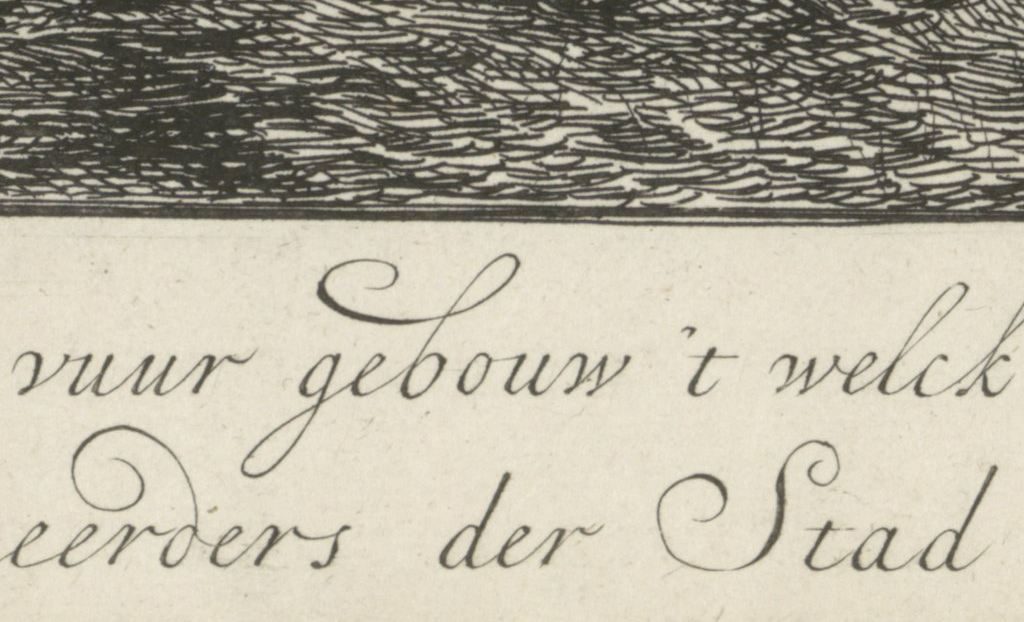 vuur gebouw 't welck
eerders der Stad